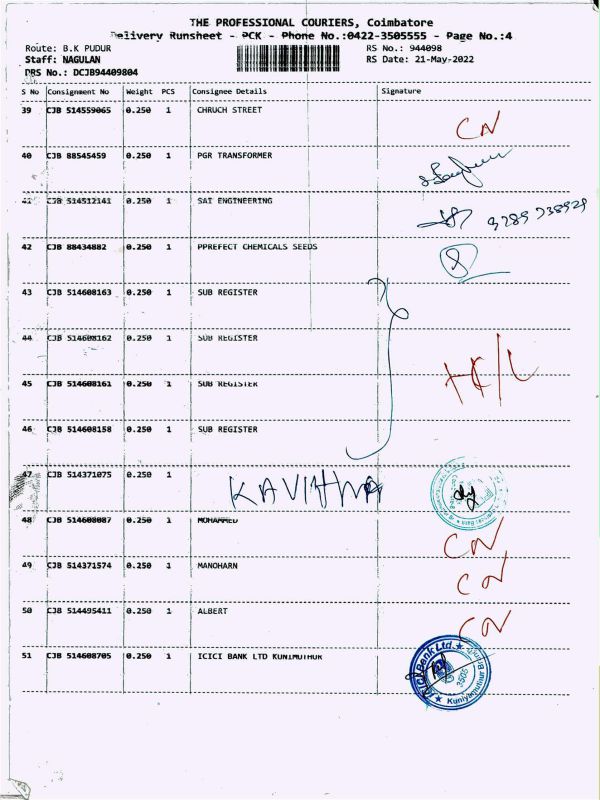 THE PROFESSIONAL COURIERS, Coimbatore
Delivery Runsheet - PCK - Phone No.:0422-3505555 - Page No.:4
Route: B.K PUDUR RS No.: 944098
Staff: NAGULAN RS Date: 21-May-2022
DRS No.: DCJB94409804
S No Consignment No Weight PCS Consignee Details Signature
39 CJB 514559065 0.250 1 CHRUCH STREET CN
40 CJB 88545459 0.250 1 PGR TRANSFORMER
41 CJB 514512141 0.250 1 SAI ENGINEERING 9789738929
42 CJB 88434882 0.250 1 PPREFECT CHEMICALS SEEDS
43 CJB 514608163 0.250 1 SUB REGISTER
44 CJB 514608162 0.250 1 SUB REGISTER
45 CJB 514608161 0.250 1 SUB REGISTER
46 CJB 514608158 0.250 1 SUB REGISTER
47 CJB 514371075 0.250 1 KAVITHA
48 CJB 514608087 0.250 1 MOHAMMED CN
49 CJB 514371574 0.250 1 MANOHARN CN
50 CJB 514495411 0.250 1 ALBERT CN
51 CJB 514608705 0.250 1 ICICI BANK LTD KUNIMUTHUR
ICICI Bank Ltd. ★ Kuniyamuthur Br
3505